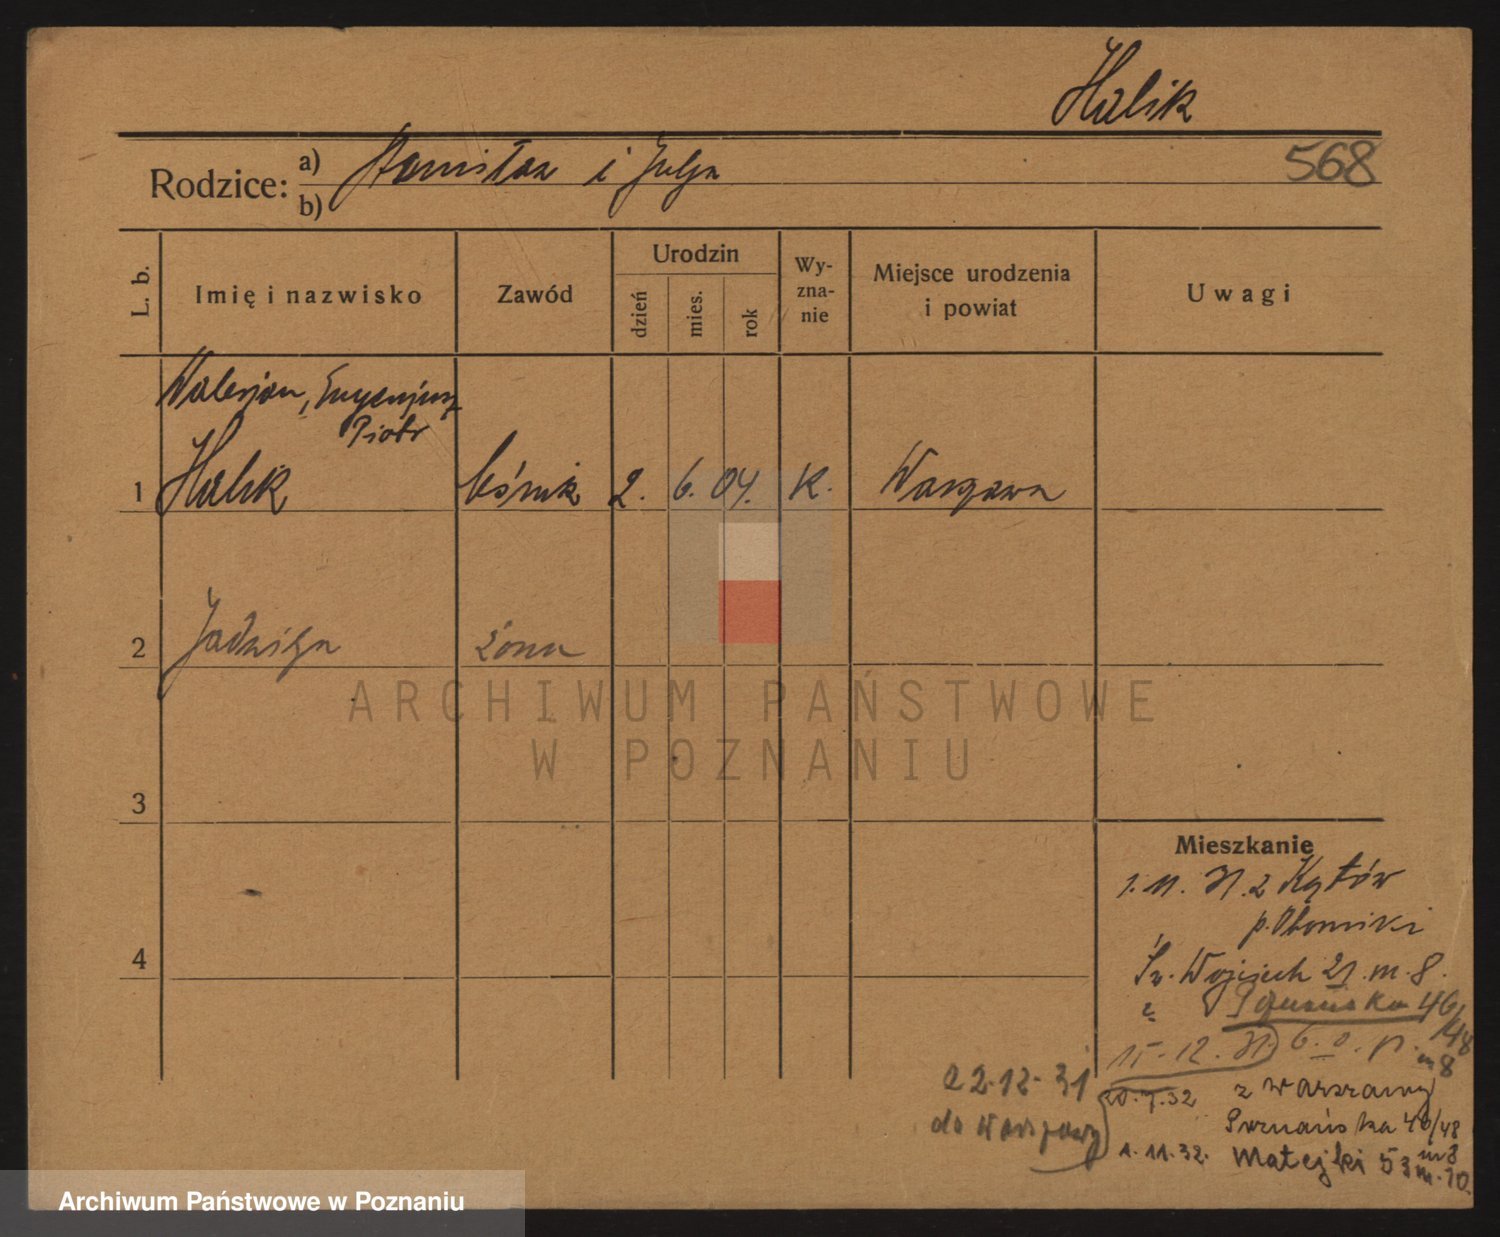 Halik
Rodzice: a) Stanisław i Julja
b)
568
L. b.
Imię i nazwisko
Zawód
Urodzin
dzień
mies.
rok
Wy-
zna-
nie
Miejsce urodzenia
i powiat
Uwagi
Walerjan, Eugenjusz
Piotr
1 Halik leśnik 2. 6. 04. K. Warszawa
2 Jadwiga żona
3
4
ARCHIWUM PAŃSTWOWE
W POZNANIU
Mieszkanie
1. 11. 31. z Kątów
p. Oborniki
Św. Wojciech 21. m. 8.
Poznańska 46/48
15. 12. 31. m 8
22-12-31
do Warszawy
20.7.32 z Warszawy
Poznańska 46/48
m 8
1. 11. 32. Matejki 53 m. 10.
Archiwum Państwowe w Poznaniu